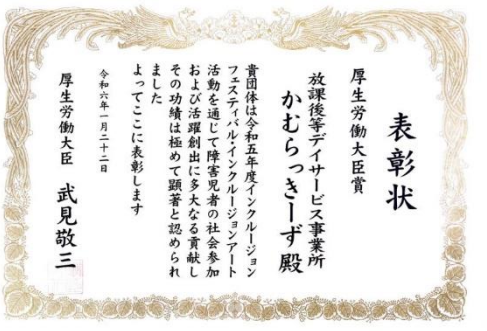 表彰状
厚生労働大臣賞
放課後等デイサービス事業所
かむらっきーず 殿
貴団体は令和五年度インクルージョン
フェスティバル・インクルージョンアート
活動を通じて障害児者の社会参加
および活躍創出に多大なる貢献し
その功績は極めて顕著と認められ
ました
よってここに表彰します
令和六年一月二十二日
厚生労働大臣 武見敬三